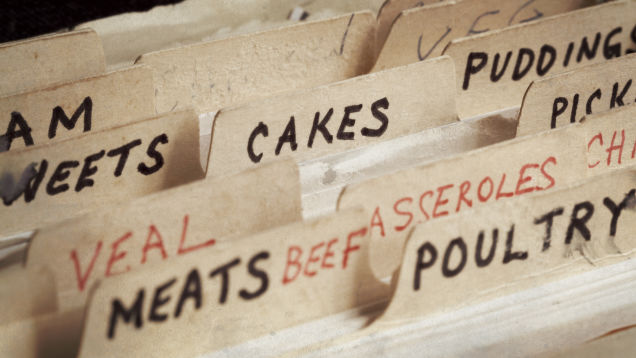 VEG
PUDDINGS
AM
CAKES
PICK
WEETS
CH
ASSEROLES
VEAL
BEEF
MEATS
POULTRY